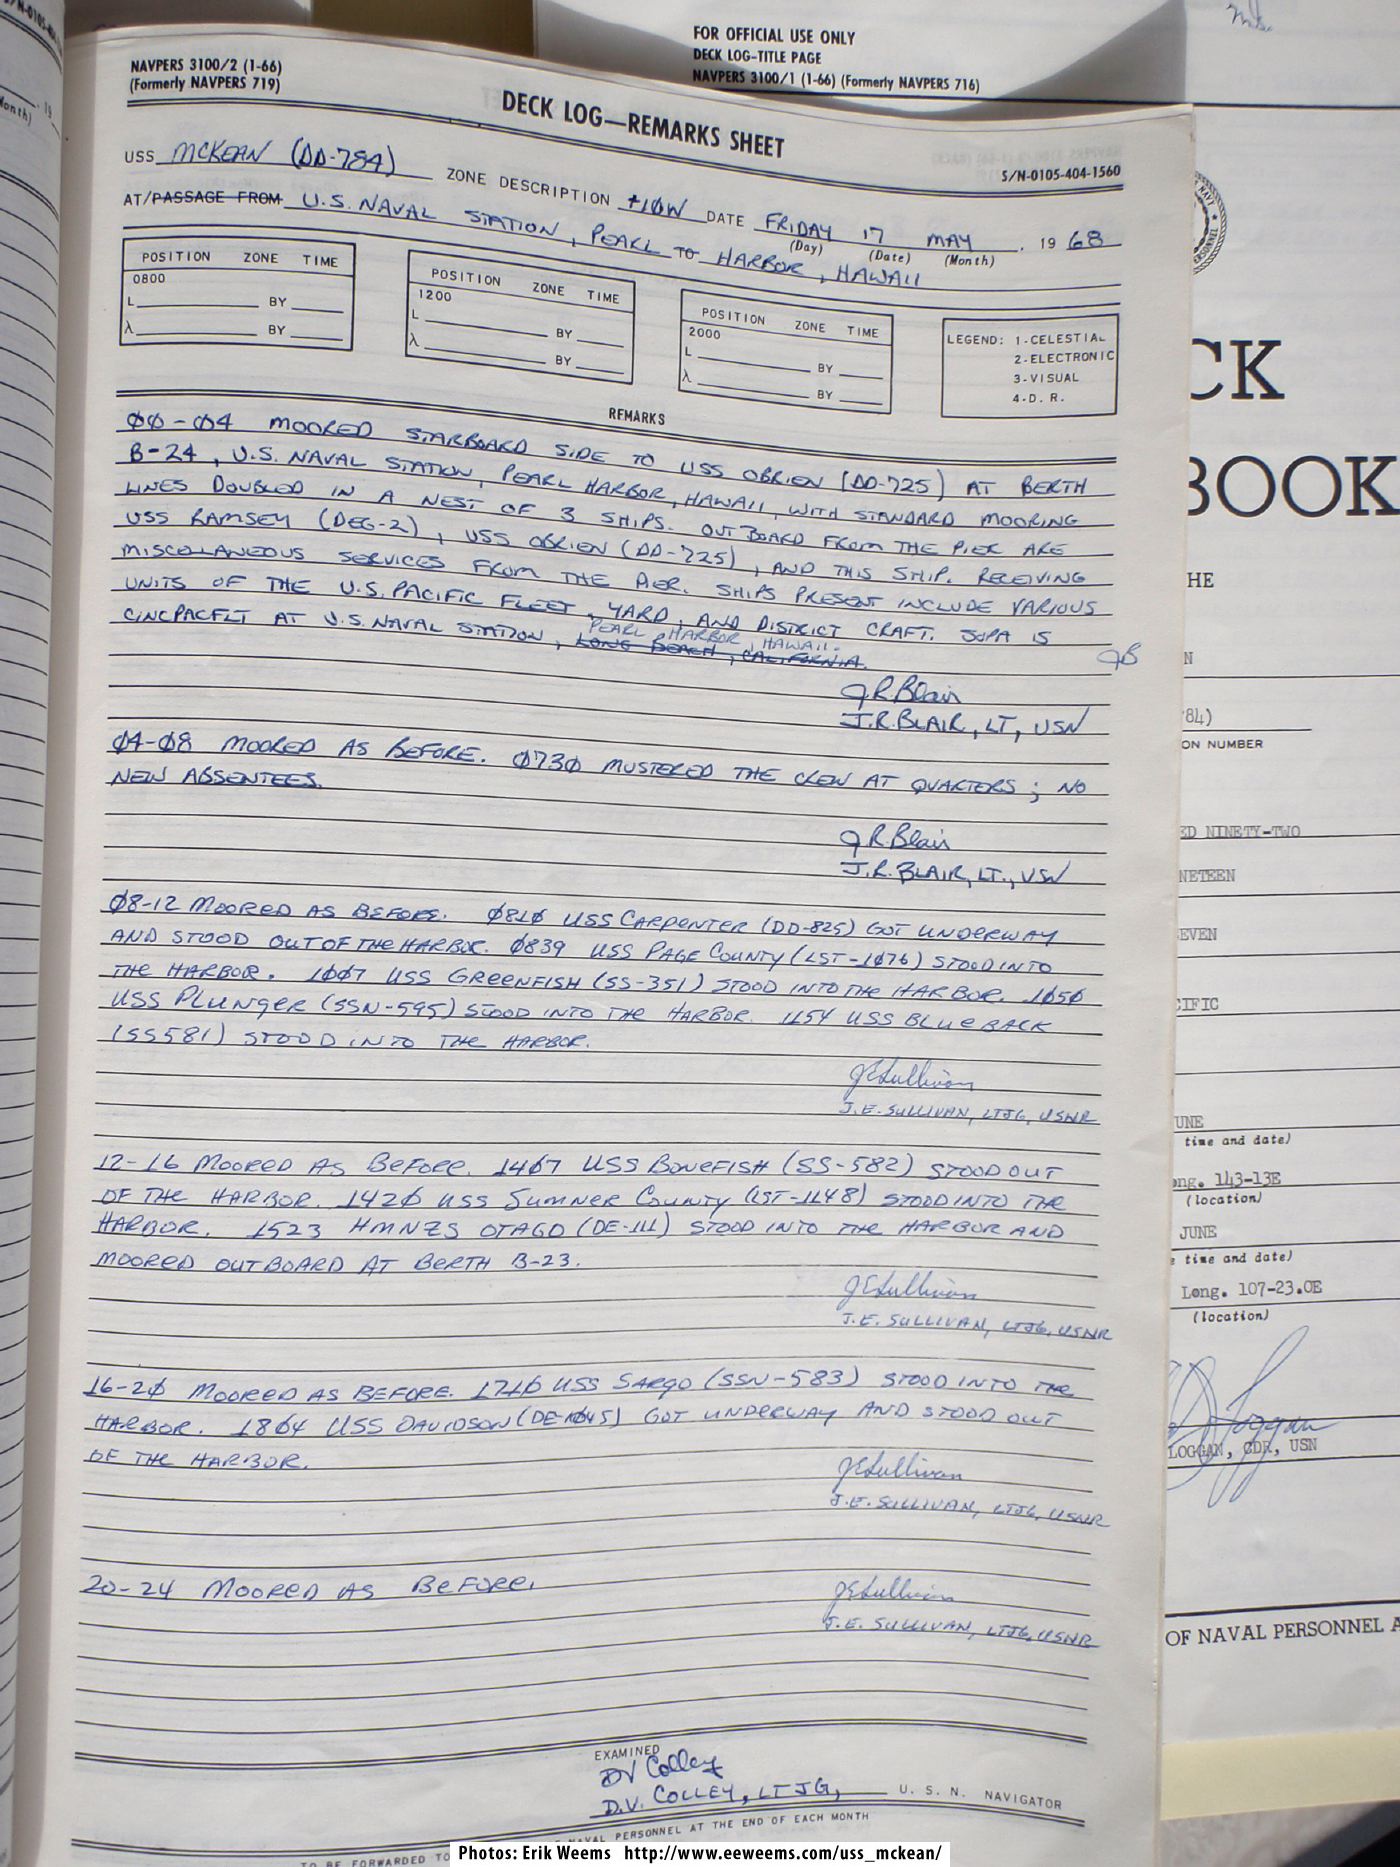 FOR OFFICIAL USE ONLY
DECK LOG-TITLE PAGE
NAVPERS 3100/1 (1-66) (Formerly NAVPERS 716)
NAVPERS 3100/2 (1-66)
(Formerly NAVPERS 719)
DECK LOG—REMARKS SHEET
S/N-0105-404-1560
USS MCKEAN (DD-784) ZONE DESCRIPTION +10W DATE FRIDAY 17 MAY, 19 68
(Day) (Date) (Month)
AT/PASSAGE FROM U.S. NAVAL STATION, PEARL TO HARBOR, HAWAII
POSITION ZONE TIME
0800
L BY
λ BY
POSITION ZONE TIME
1200
L BY
λ BY
POSITION ZONE TIME
2000
L BY
λ BY
LEGEND: 1-CELESTIAL
2-ELECTRONIC
3-VISUAL
4-D. R.
REMARKS
00-04 MOORED STARBOARD SIDE TO USS OBRIEN (DD-725) AT BERTH
B-24, U.S. NAVAL STATION, PEARL HARBOR, HAWAII, WITH STANDARD MOORING
LINES DOUBLED IN A NEST OF 3 SHIPS. OUTBOARD FROM THE PIER ARE
USS RAMSEY (DEG-2), USS OBRIEN (DD-725), AND THIS SHIP. RECEIVING
MISCELLANEOUS SERVICES FROM THE PIER. SHIPS PRESENT INCLUDE VARIOUS
UNITS OF THE U.S. PACIFIC FLEET, YARD, AND DISTRICT CRAFT. SOPA IS
PEARL HARBOR, HAWAII.
CINCPACFLT AT U.S. NAVAL STATION, LONG BEACH, CALIFORNIA.
JB
J.R. Blair
J.R. BLAIR, LT, USN
04-08 MOORED AS BEFORE. 0730 MUSTERED THE CREW AT QUARTERS; NO
NEW ABSENTEES.
J.R. Blair
J.R. BLAIR, LT., USN
08-12 MOORED AS BEFORE. 0810 USS CARPENTER (DD-825) GOT UNDERWAY
AND STOOD OUT OF THE HARBOR. 0839 USS PAGE COUNTY (LST-1076) STOOD INTO
THE HARBOR. 1007 USS GREENFISH (SS-351) STOOD INTO THE HARBOR. 1050
USS PLUNGER (SSN-595) STOOD INTO THE HARBOR. 1154 USS BLUEBACK
(SS581) STOOD INTO THE HARBOR.
JE Sullivan
J.E. SULLIVAN, LTJG, USNR
12-16 MOORED AS BEFORE. 1407 USS BONEFISH (SS-582) STOOD OUT
OF THE HARBOR. 1420 USS SUMNER COUNTY (LST-1148) STOOD INTO THE
HARBOR. 1523 HMNZS OTAGO (DE-111) STOOD INTO THE HARBOR AND
MOORED OUTBOARD AT BERTH B-23.
JE Sullivan
J.E. SULLIVAN, LTJG, USNR
16-20 MOORED AS BEFORE. 1710 USS SARGO (SSN-583) STOOD INTO THE
HARBOR. 1804 USS DAVIDSON (DE-1045) GOT UNDERWAY AND STOOD OUT
OF THE HARBOR.
JE Sullivan
J.E. SULLIVAN, LTJG, USNR
20-24 MOORED AS BEFORE.
JE Sullivan
J.E. SULLIVAN, LTJG, USNR
EXAMINED
DV Colley
D.V. COLLEY, LTJG, U. S. N. NAVIGATOR
TO BE FORWARDED TO NAVAL PERSONNEL AT THE END OF EACH MONTH
CK
BOOK
HE
N
84)
ON NUMBER
ED NINETY-TWO
NETEEN
EVEN
CIFIC
UNE
time and date)
ong. 143-13E
(location)
JUNE
time and date)
Long. 107-23.0E
(location)
Loggan
LOGGAN, CDR, USN
OF NAVAL PERSONNEL A
Photos: Erik Weems http://www.eeweems.com/uss_mckean/